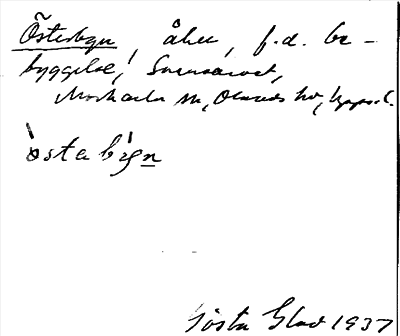 Österbyn, åker, f.d. be-
byggelse, Svensåret,
Morkarla sn, Olands hd, Upps. l.
östa byn
Gösta Glad 1937